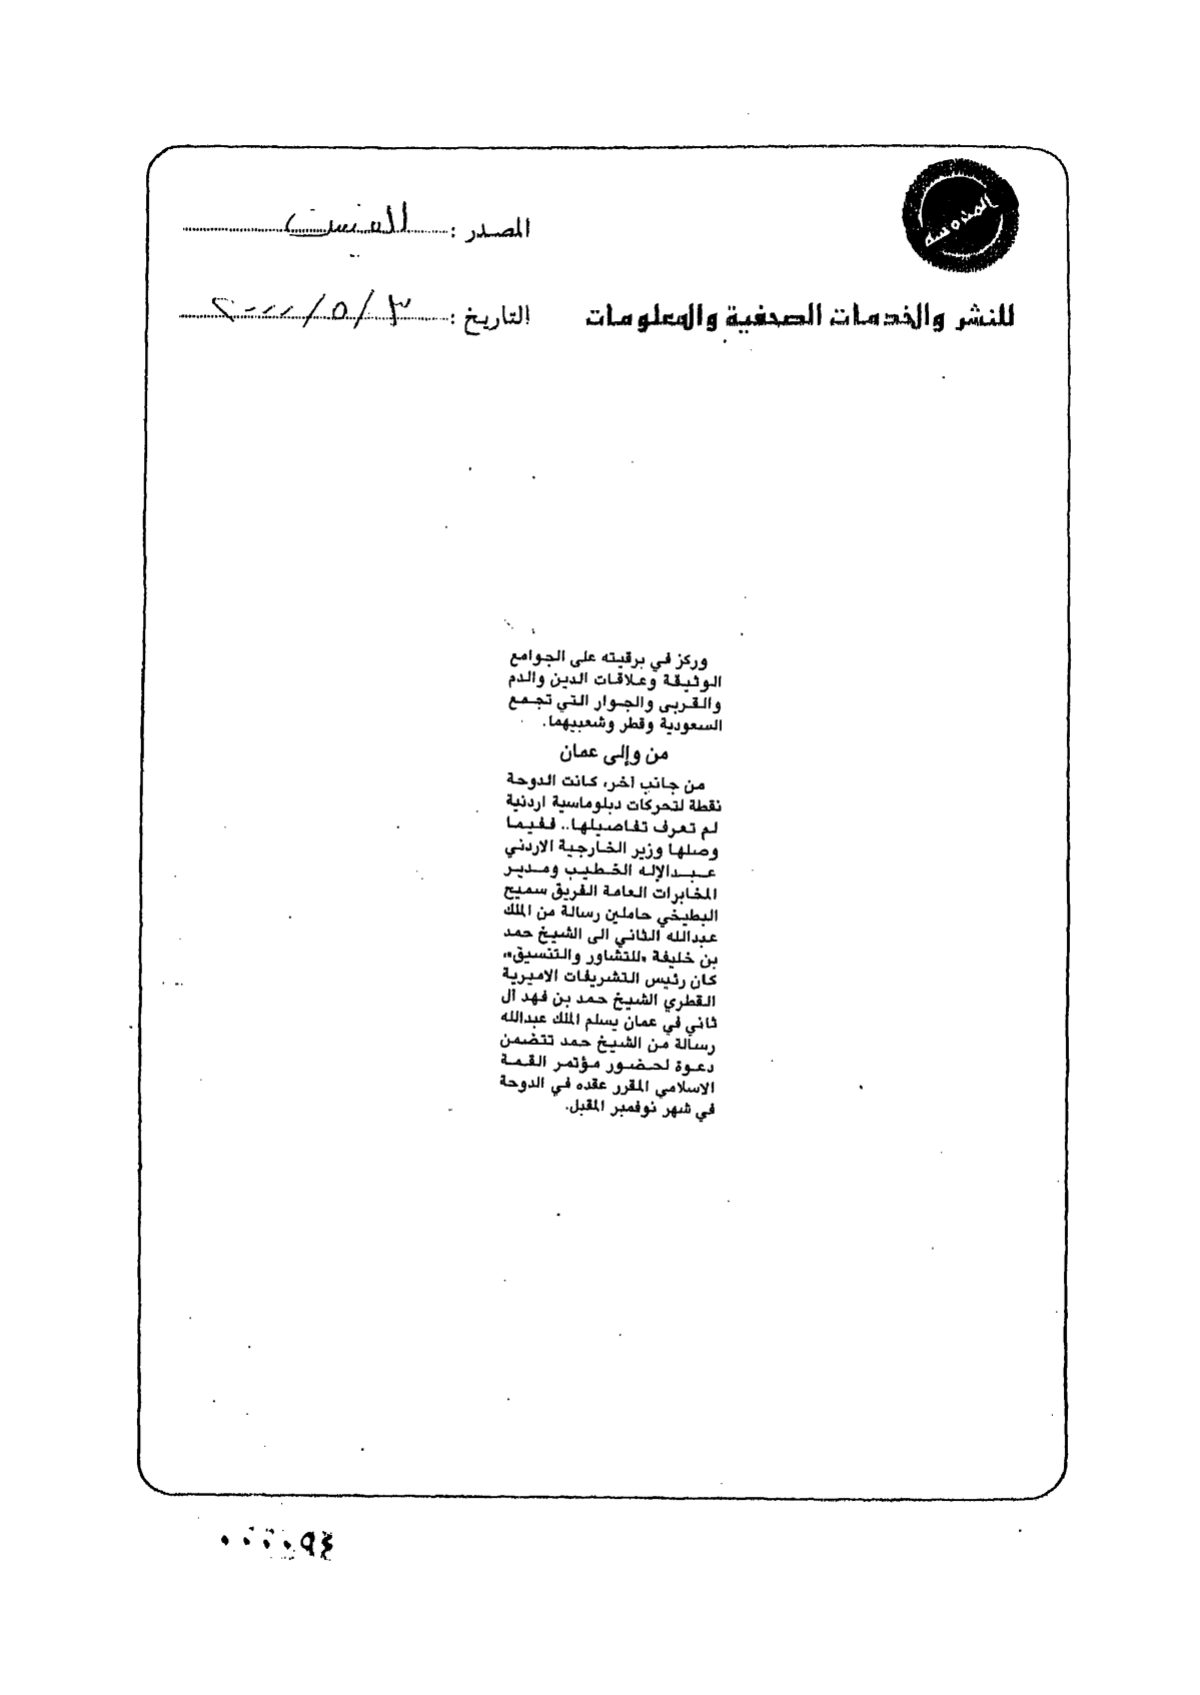 المصدر :
التاريخ : ٣ / ٥ / ٢٠٠٠
للنشر والخدمات الصحفية والمعلومات
وركز في برقيته على الجوامع
الوثيقة وعلاقات الدين والدم
والقربى والجوار التي تجمع
السعودية وقطر وشعبيهما.
من وإلى عمان
من جانب آخر، كانت الدوحة
نقطة لتحركات دبلوماسية اردنية
لم تعرف تفاصيلها.. ففيما
وصلها وزير الخارجية الاردني
عبدالإله الخطيب ومدير
المخابرات العامة الفريق سميح
البطيخي حاملين رسالة من الملك
عبدالله الثاني الى الشيخ حمد
بن خليفة «للتشاور والتنسيق»،
كان رئيس التشريفات الاميرية
القطري الشيخ حمد بن فهد آل
ثاني في عمان يسلم الملك عبدالله
رسالة من الشيخ حمد تتضمن
دعوة لحضور مؤتمر القمة
الاسلامي المقرر عقده في الدوحة
في شهر نوفمبر المقبل.